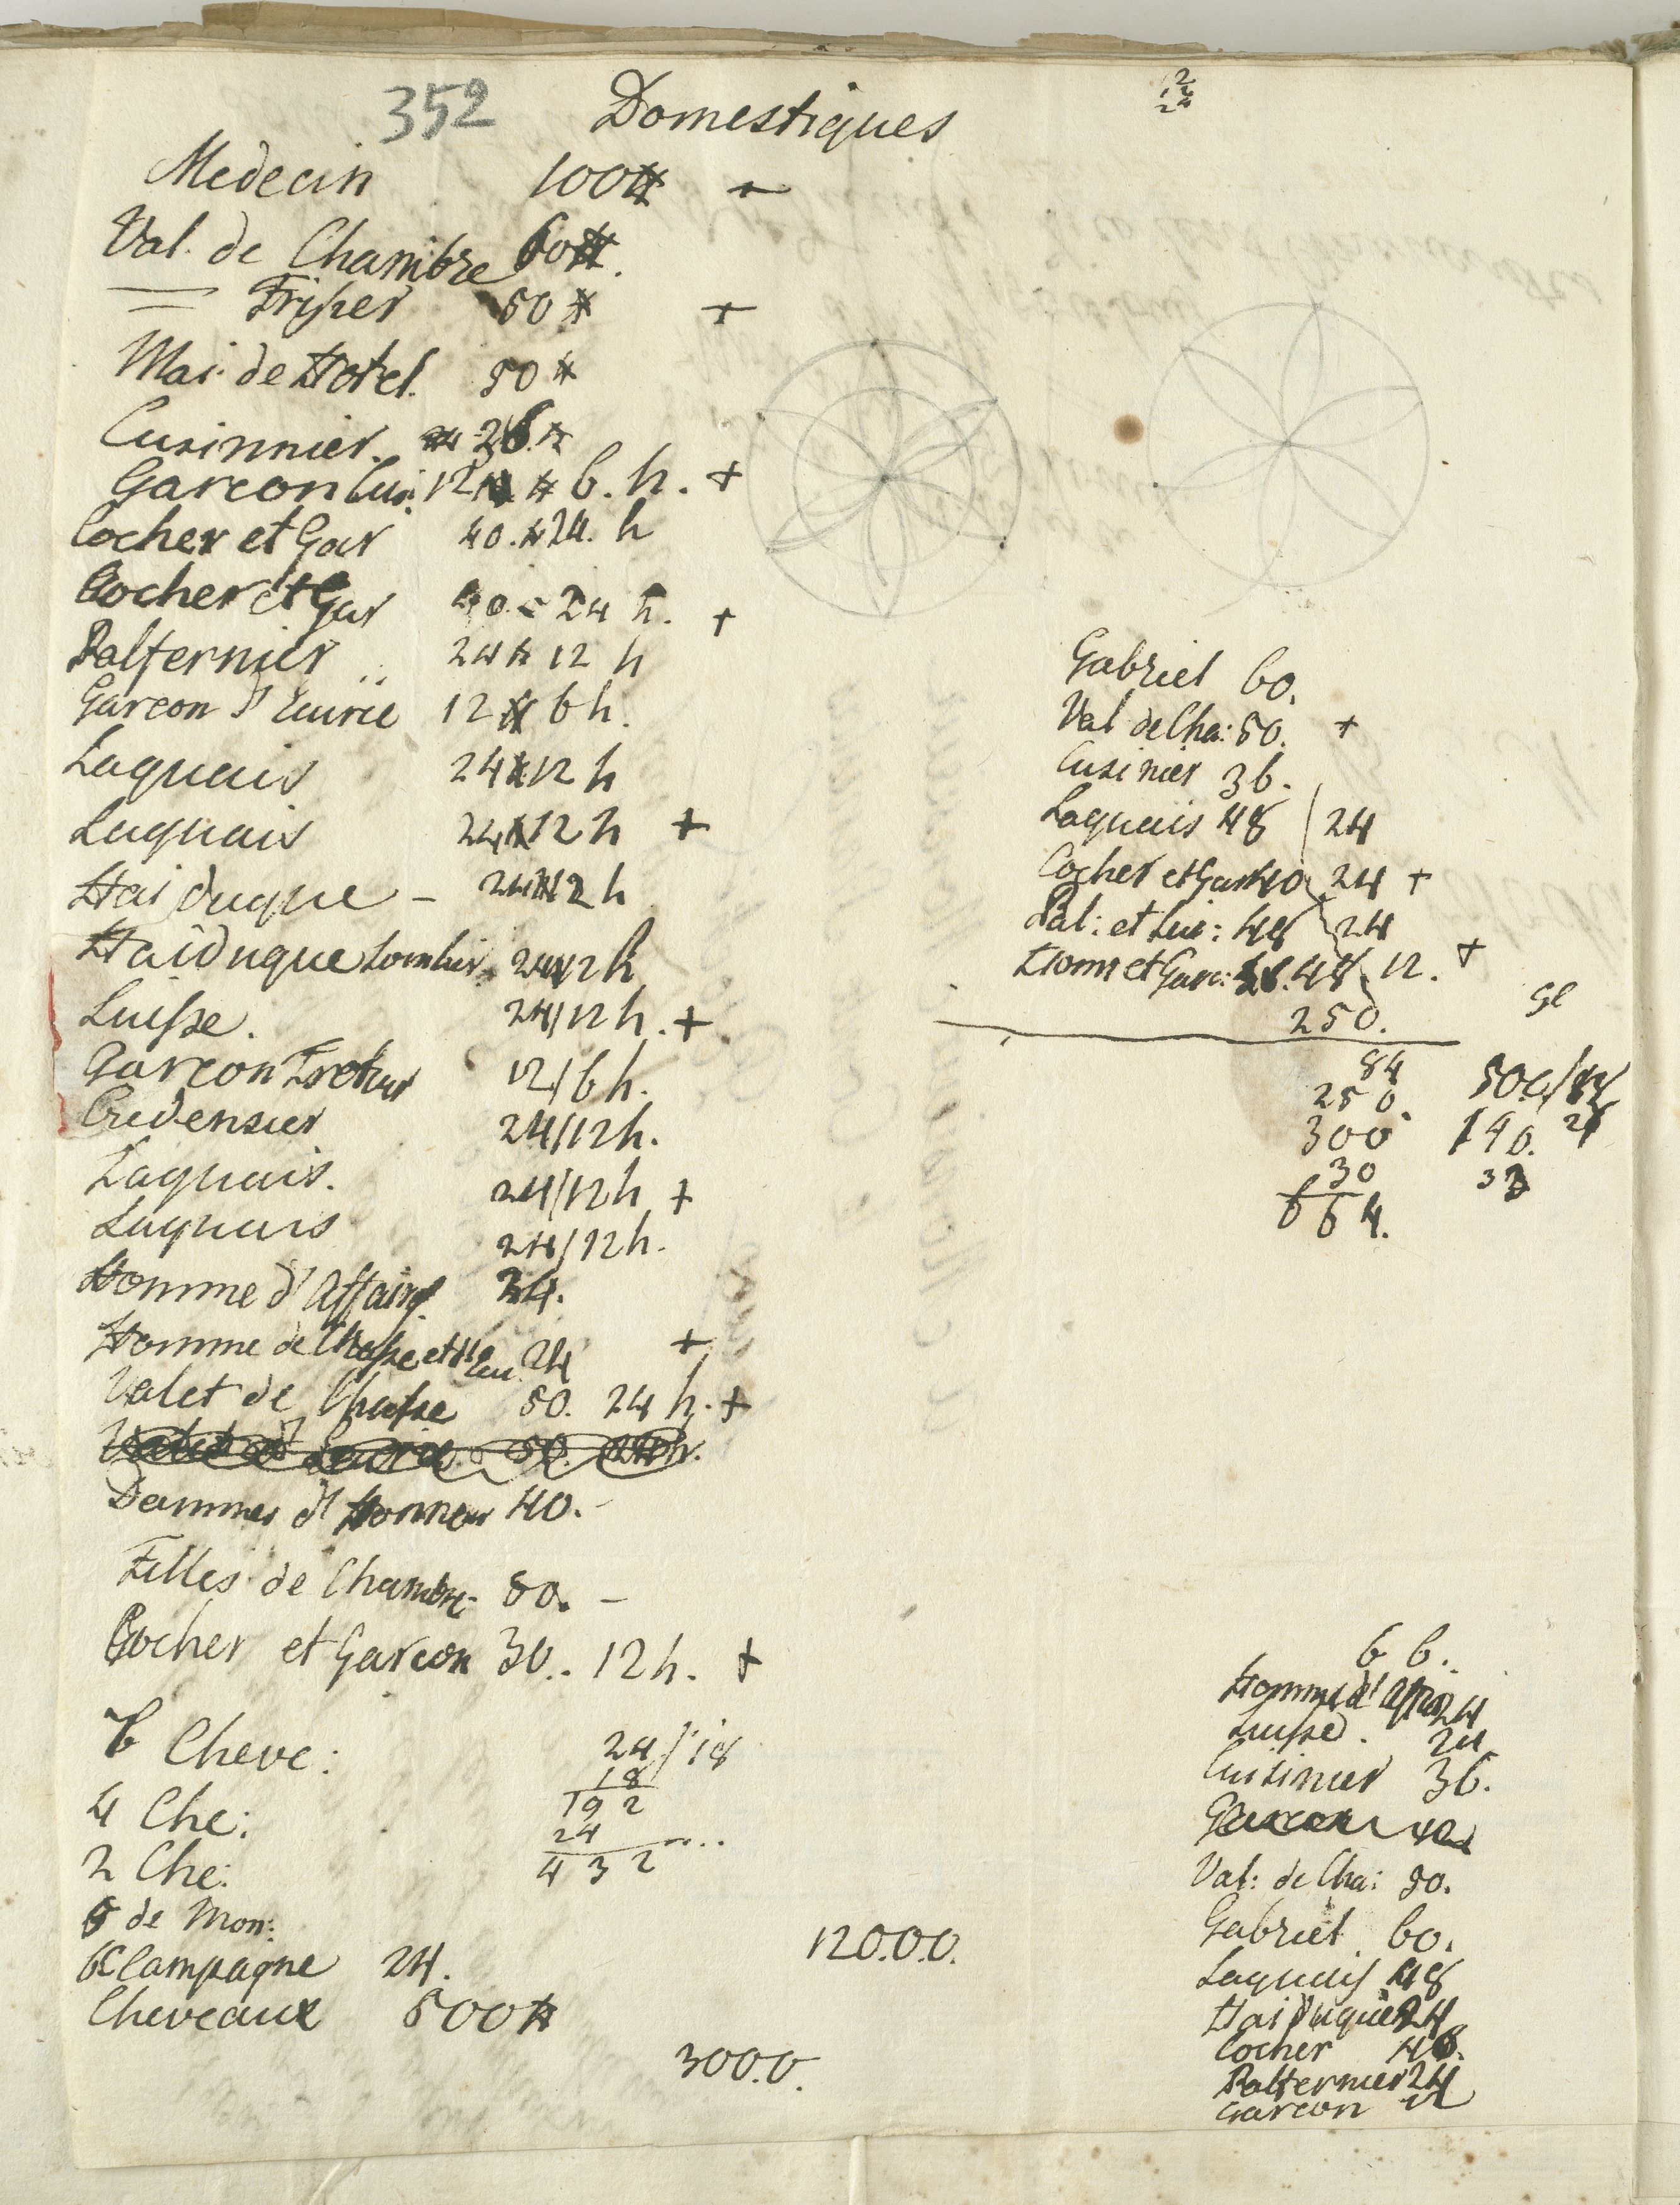 352 Domestiques
Medecin 100#
Val. de Chambre 60#.
Friser 50# +
Mai. de Hotel. 50#
Cusinnier. 36.#
Garcon Cui. 12 # 6. h. +
Cocher et Gar 40.# 24. h
Cocher et Gar 40. 24 h. +
Palfernier 24# 12 h
Garcon d'Ecurie 12# 6 h.
Laquais 24# 12 h
Laquais 24# 12 h +
Haiduque - 24# 12 h
Haiduque 24/12 h
Suisse. 24/12 h. +
Garcon 12/6 h.
Credensier 24/12 h.
Laquais. 24/12 h +
Laquais 24/12 h.
Homme d'Affaire 24.
Homme de Chasse et 24 +
Valet de Chasse 50. 24 h. +
50. 24 h.
Dammes d'Honneur 40. -
Filles de Chambre 50. -
Cocher et Garcon 30.. 12 h. +
6 Cheve:
4 Che:
2 Che:
6 de Mon:
Campagne 24.
Cheveaux 500#
24/18
18
192
24
432
12000.
3000.
2
24
Gabriel 60.
Val de Cha: 50. +
Cusinier 36.
Laquais 48 / 24
Cocher et Gar 40 24 +
Pal: et 48 24
Hom et Garc: 48 12. +
250.
84
250
300
30
664.
190.
6 6.
Homme d'Affair 24
Suisse. 24
Cuisinier 36.
Garcon
Val: de Cha: 50.
Gabriel 60.
Laquais 48
Haiduque 24
Cocher
Palfernier 24
Garcon 12